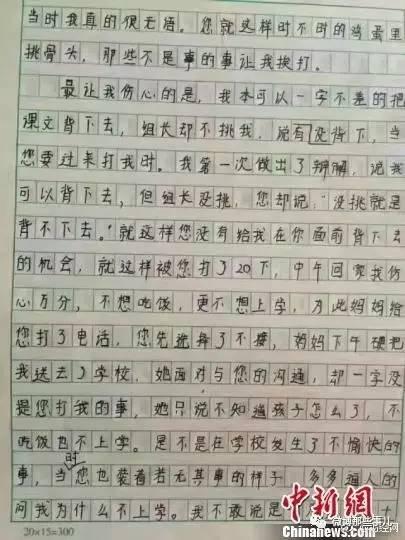 当时我真的很无语。您就这样时不时的鸡蛋里
挑骨头，那些不是事的事让我挨打。
最让我伤心的是，我本可以一字不差的把
课文背下去，组长却不挑我，说有没背下，当
您要过来打我时。我第一次做出了辩解，说我
可以背下去，但组长没挑，您却说："没挑就是
背不下去。"就这样您没有给我在你面前背下去
的机会，就这样被您打了20下，中午回家我伤
心万分，不想吃饭，更不想上学，为此妈妈给
您打了电话，您先选择了不接，妈妈下午硬把
我送去了学校，她面对与您的沟通，却一字没
提您打我的事，她只说不知道孩子怎么了，不
吃饭也不上学。是不是在学校发生了不愉快的
事，当时您也装着若无其事的样子，多多逼人的
问我为什么不上学。我不敢说是
20×15=300
中新网
CHINANEWS.COM
微博那些事儿